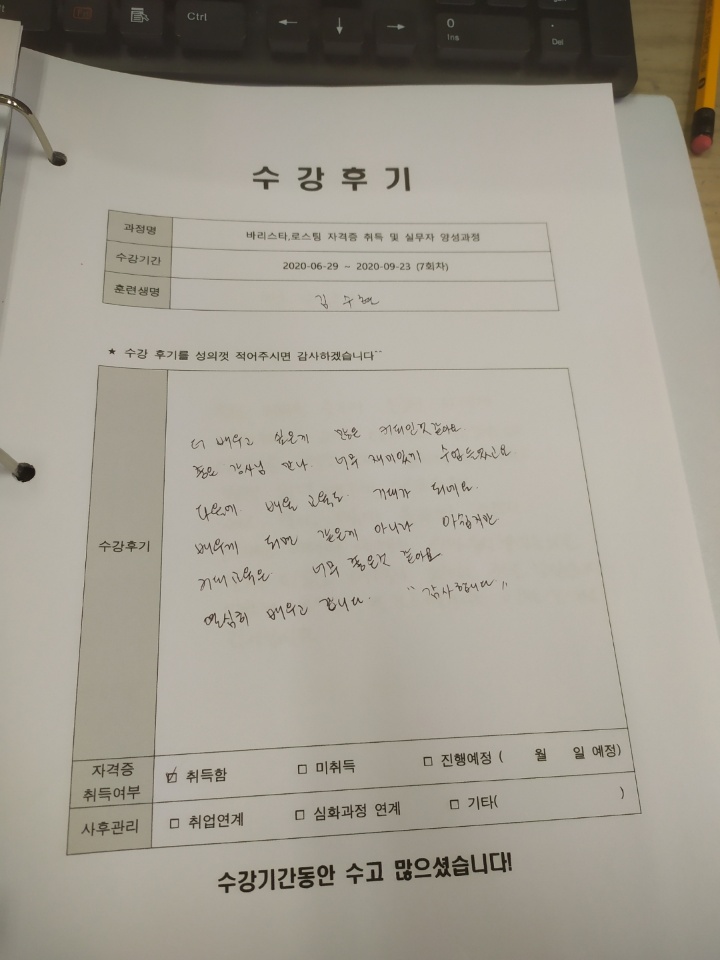 Ctrl
←
↓
→
0
Ins
.
Del
수 강 후 기
과정명
바리스타,로스팅 자격증 취득 및 실무자 양성과정
수강기간
2020-06-29 ~ 2020-09-23 (7회차)
훈련생명
김 수현
★ 수강 후기를 성의껏 적어주시면 감사하겠습니다^^
수강후기
더 배우고 싶은게 많은 커피인것같아요
좋은 강사님 만나 너무 재미있게 수업들었고요
다음에 배울 교육도 기대가 되네요
배우게 되면 같은게 아니라 아쉽지만
커피교육은 너무 좋은것 같아요
열심히 배우고 갑니다. "감사합니다"
자격증
취득여부
☑ 취득함 □ 미취득 □ 진행예정 ( 월 일 예정)
사후관리
□ 취업연계 □ 심화과정 연계 □ 기타( )
수강기간동안 수고 많으셨습니다!